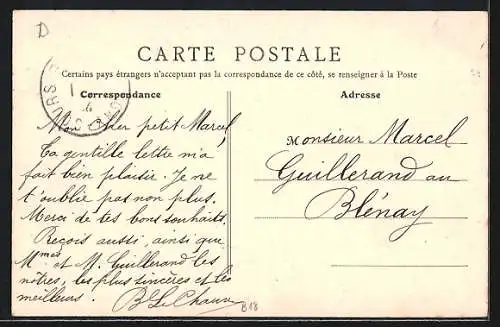 D
CARTE POSTALE
Certains pays étrangers n'acceptant pas la correspondance de ce côté, se renseigner à la Poste
Correspondance
Mon Cher petit Marcel,
Ta gentille lettre m'a
fait bien plaisir. Je ne
t'oublie pas non plus.
Merci de tes bons souhaits.
Reçois aussi, ainsi que
Mme et M. Guillerand les
nôtres, les plus sincères et les
meilleurs.
B18
Adresse
Monsieur Marcel
Guillerand au
Blénay